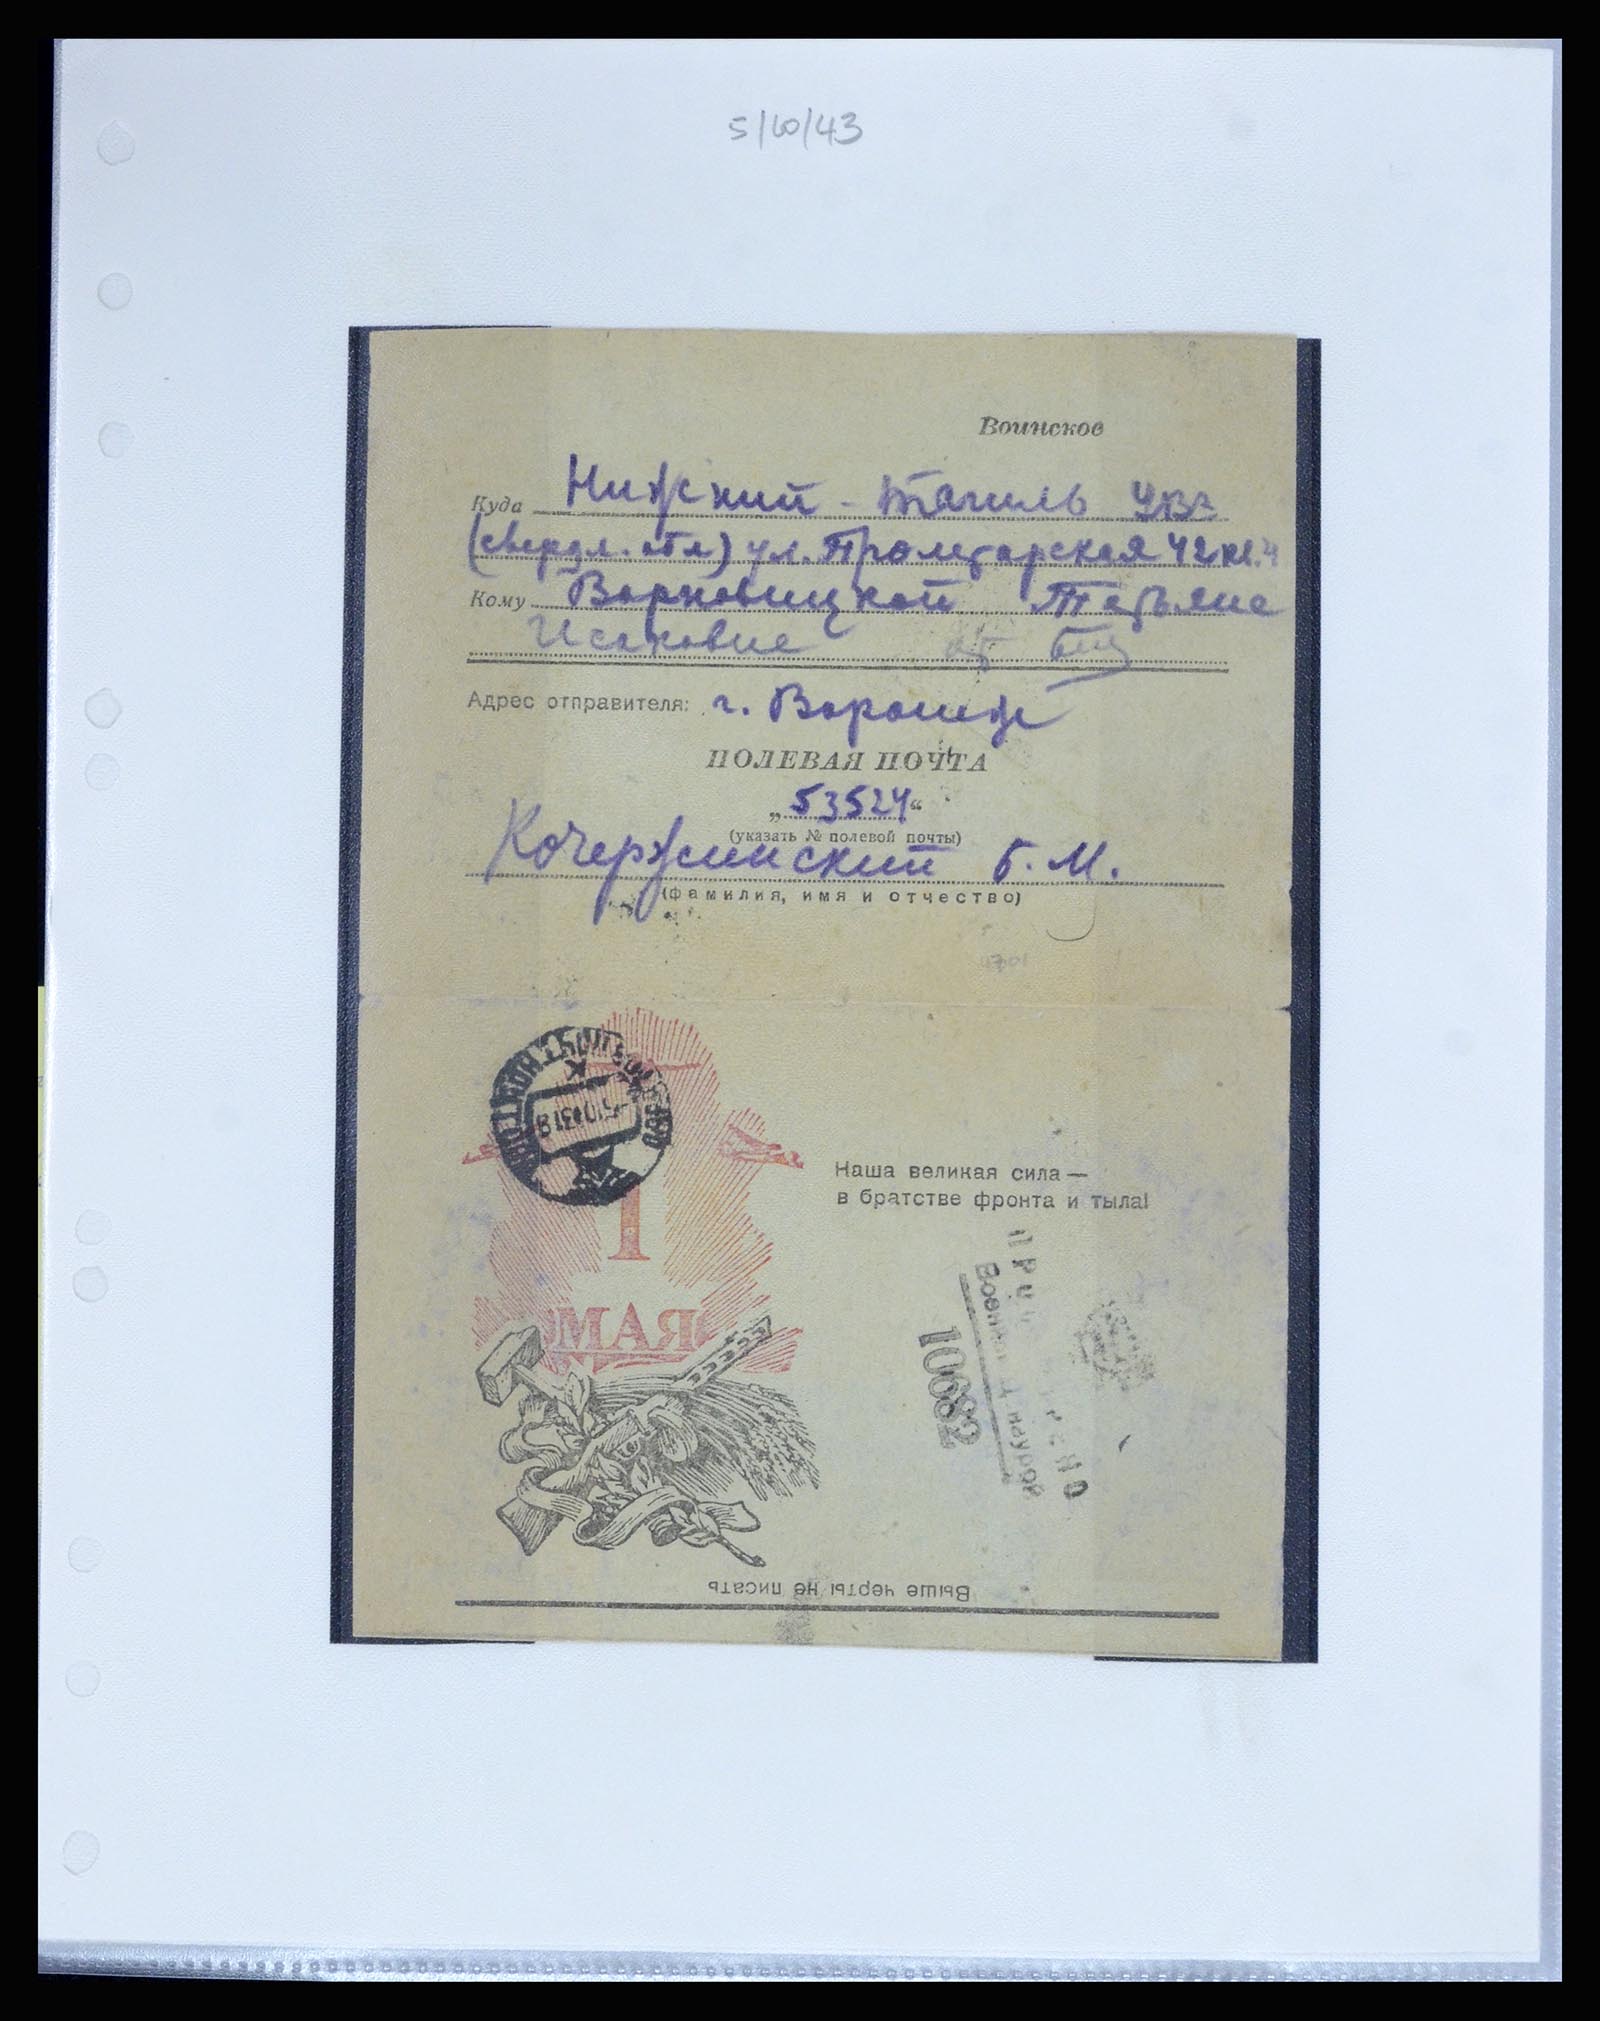 5/10/43
Воинское
Куда Нижний - Тагиль УВЗ
(свердл. обл) ул. Пролетарская 42 кв. 4
Кому Варновицкой Татьяне
Исаковне
Адрес отправителя: г. Воронеж
ПОЛЕВАЯ ПОЧТА
„53524“
(указать № полевой почты)
Кочержинский Б. М.
(фамилия, имя и отчество)
1
МАЯ
Наша великая сила —
в братстве фронта и тыла!
10682
Выше черты не писать